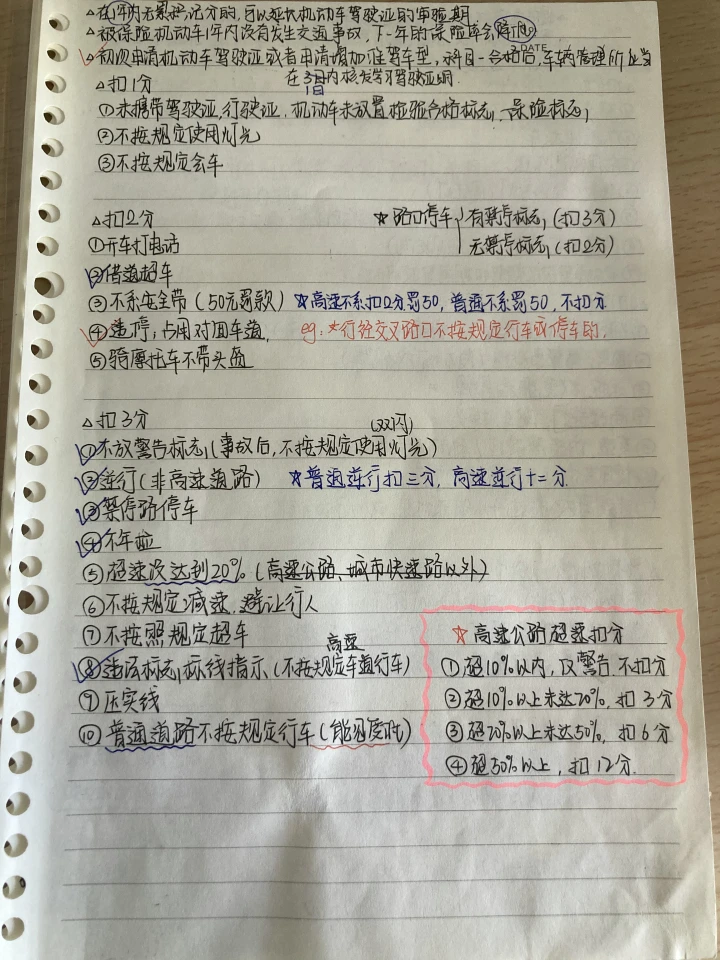 △在1年内无累积记分的,可以延长机动车驾驶证的审验期
△被保险机动车1年内没有发生交通事故,下一年的保险库会降低
DATE
△初次申请机动车驾驶证或者申请增加准驾车型,科目一合格后,车辆管理所应当
在3日内核发学习驾驶证明.
1日
△扣1分
①未携带驾驶证,行驶证,机动车未放置检验合格标志,保险标志,
②不按规定使用灯光
③不按规定会车
△扣2分
☆路口停车 有禁停标志,(扣3分)
无禁停标志,(扣2分)
①开车打电话
②借道超车
③不系安全带(50元罚款) ☆高速不系扣2分罚50,普通不系罚50,不扣分
④违停,占用对面车道, eg:☆行经交叉路口不按规定行车或停车的.
⑤骑摩托车不带头盔
△扣3分
(双闪)
①不放警告标志,(事故后,不按规定使用灯光)
②逆行(非高速道路) ☆普通逆行扣三分,高速逆行十二分.
③禁停路停车
④不年检
⑤超速没达到20%(高速公路、城市快速路以外)
⑥不按规定减速.避让行人
⑦不按照规定超车
高速
⑧违反标志,标线指示(不按规定车道行车)
⑨压实线
⑩普通道路不按规定行车(能见度低)
☆高速公路超速扣分
①超10%以内,仅警告.不扣分
②超10%以上未达20%,扣3分
③超20%以上未达50%,扣6分
④超50%以上,扣12分.